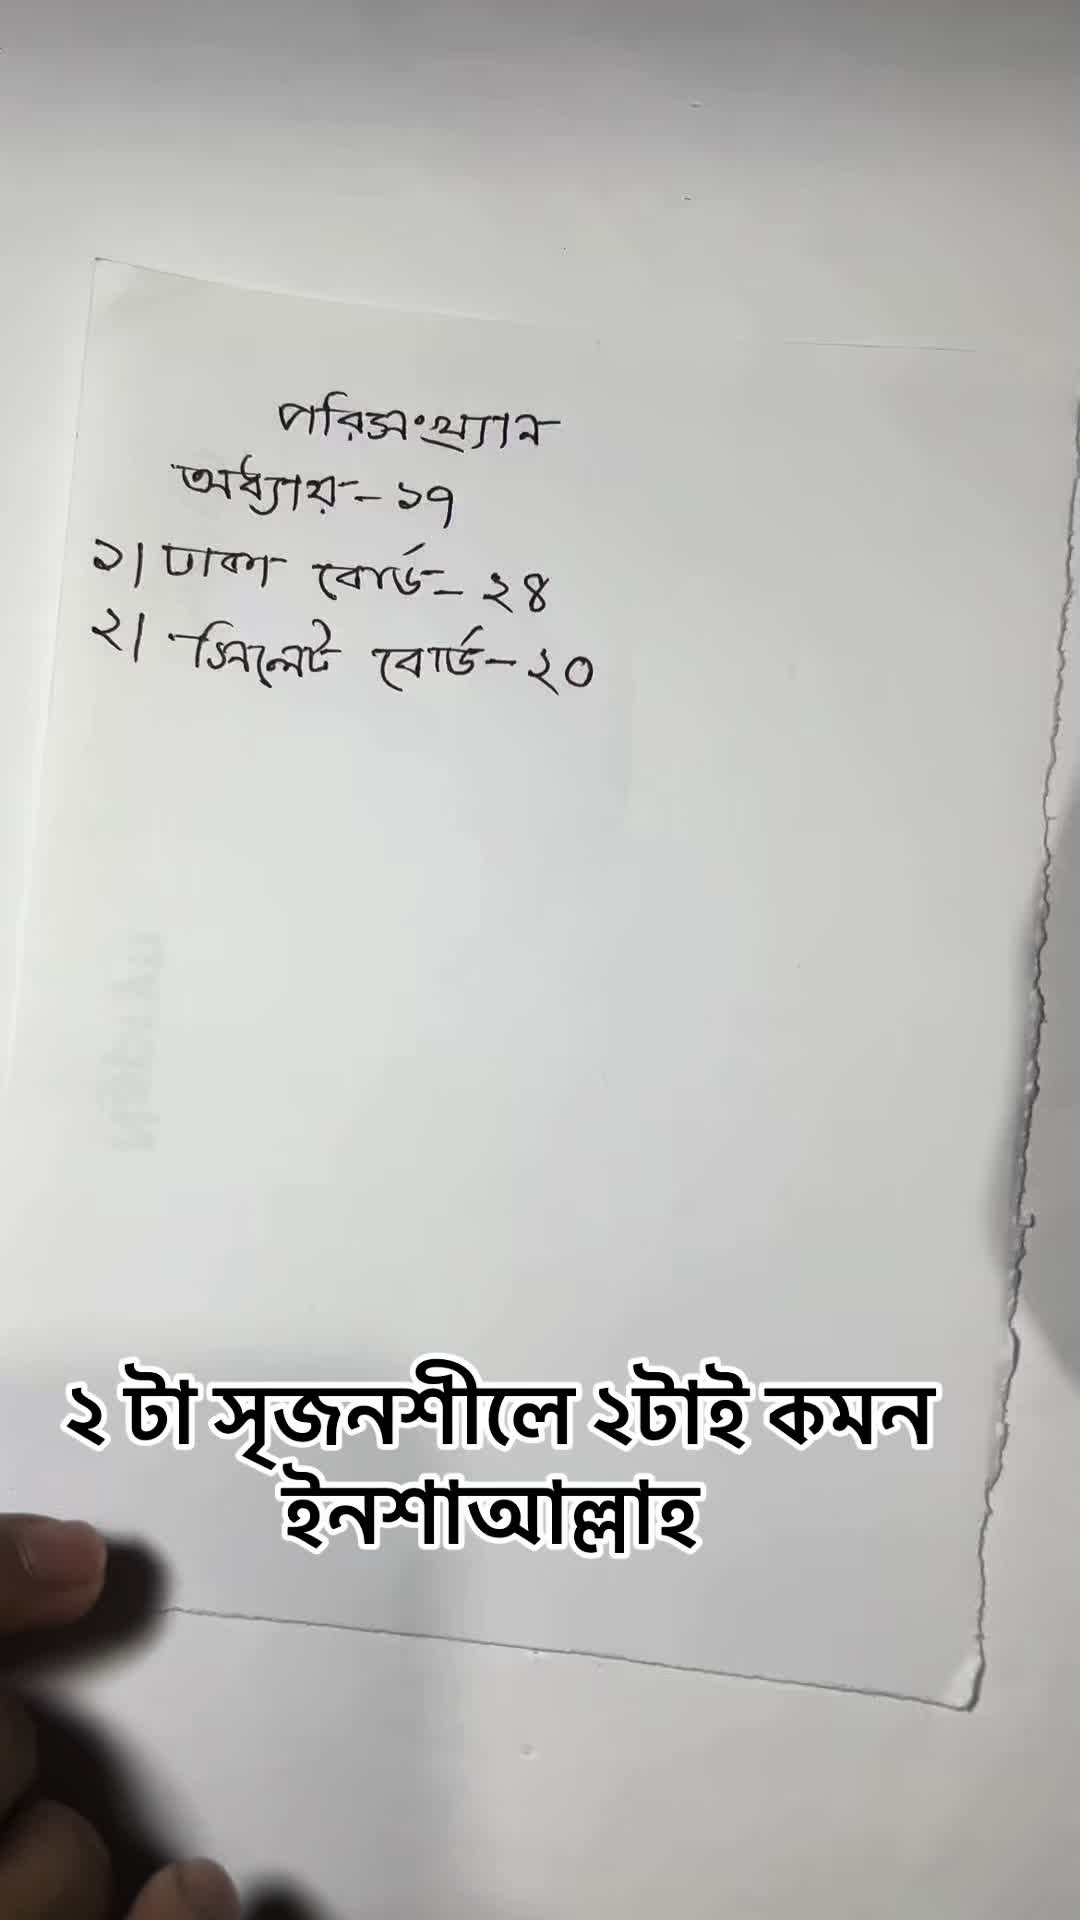 পরিসংখ্যান
অধ্যায় - ১৭
১। ঢাকা বোর্ড - ২৪
২। সিলেট বোর্ড - ২০
২ টা সৃজনশীলে ২টাই কমন
ইনশাআল্লাহ